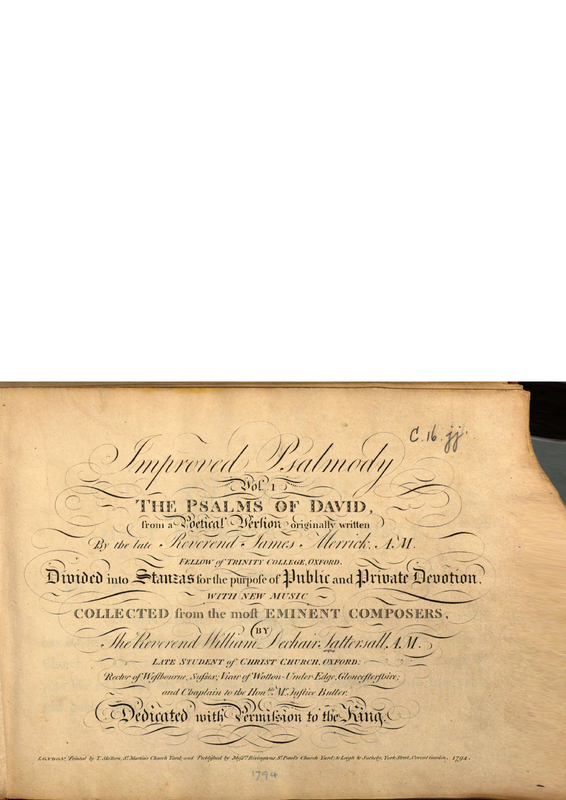 C.16.jj.
Improved Psalmody
Vol. 1
THE PSALMS OF DAVID,
from a Poetical Version originally written
By the late Reverend James Merrick, A.M.
FELLOW of TRINITY COLLEGE, OXFORD.
Divided into Stanzas for the purpose of Public and Private Devotion.
WITH NEW MUSIC
COLLECTED from the most EMINENT COMPOSERS,
BY
The Reverend William Dechair Tattersall, A.M.
LATE STUDENT of CHRIST CHURCH, OXFORD:
Rector of Westbourne, Sussex; Vicar of Wotton-Under-Edge, Gloucestershire;
and Chaplain to the Honble. Mr. Justice Buller.
Dedicated with Permission to the King.
LONDON, Printed by T. Skillern, St. Martin's Church Yard; and Published by Messrs. Rivingtons St. Paul's Church Yard; & Leigh & Sotheby, York Street, Covent Garden, 1794.
1794